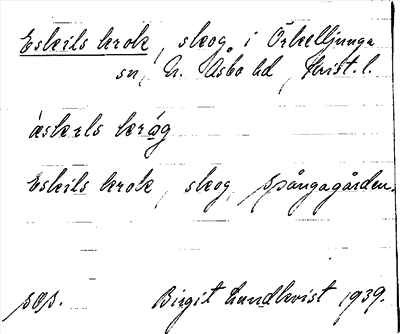 Eskils krok, skog, i Örkelljunga
sn, N. Åsbo hd, Krist. l.
áskels krog
Eskils krok, skog, Spångagården.
sps. Birgit Lundkvist 1939.